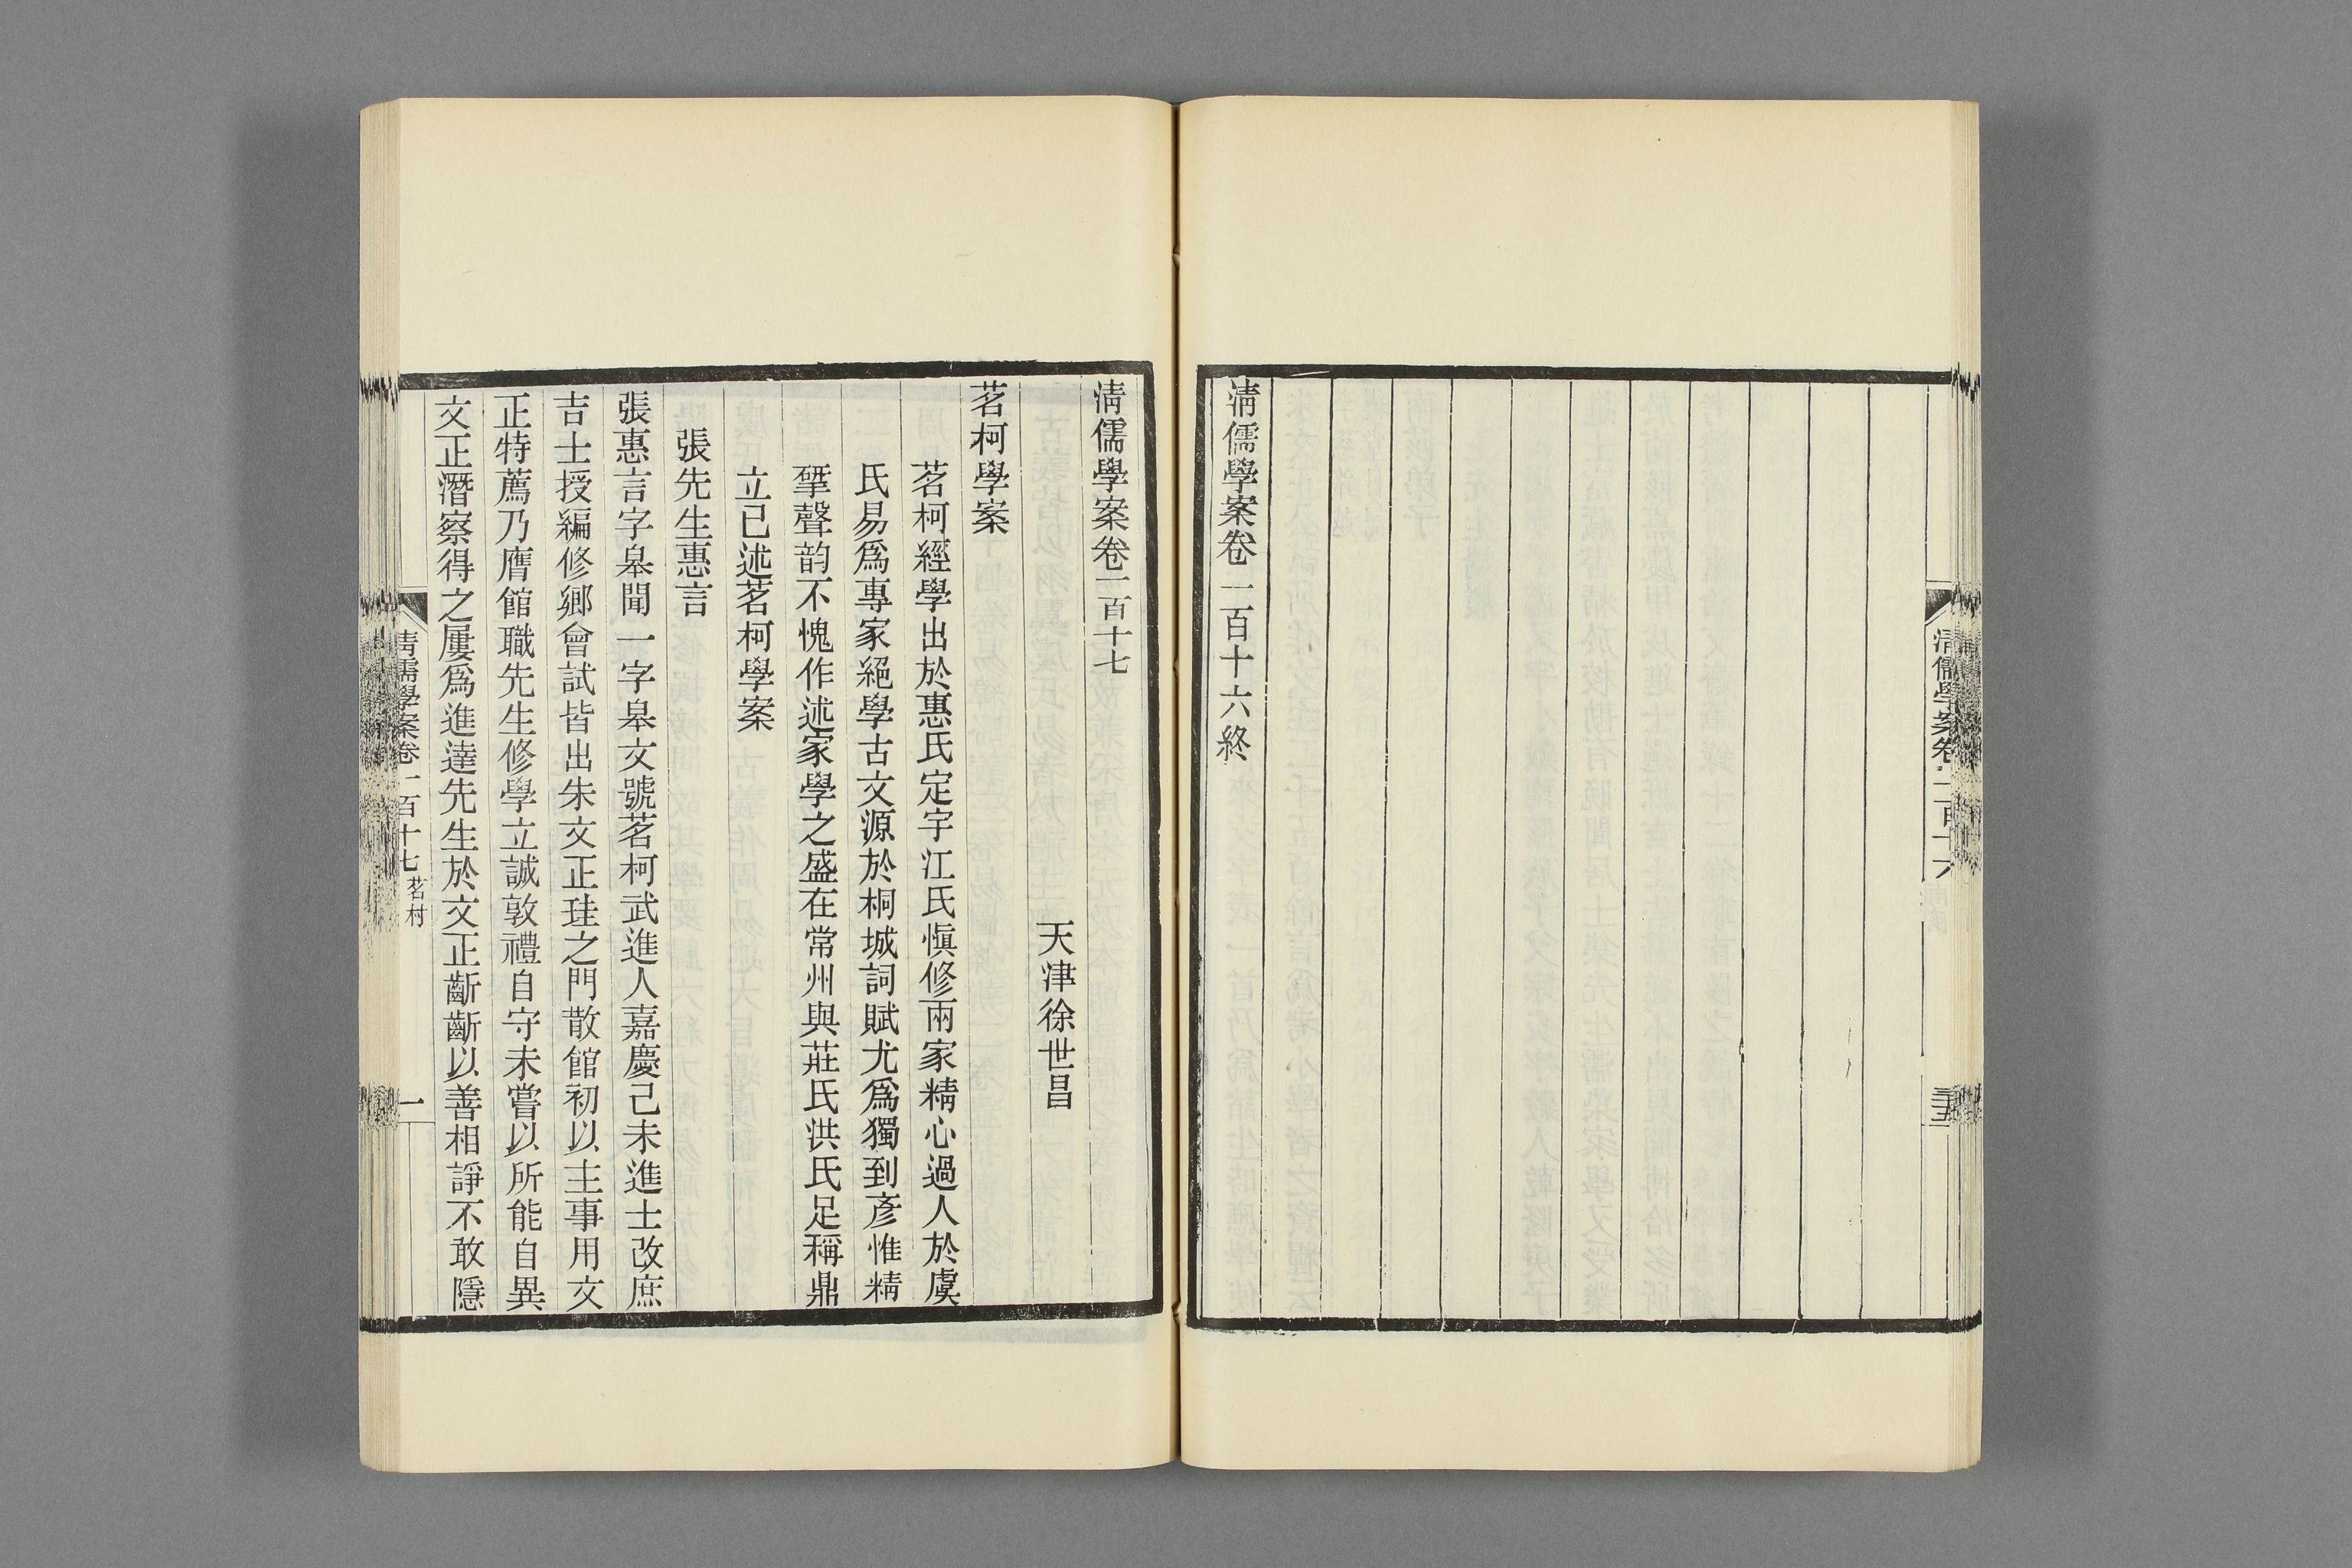 清儒學案卷一百十六
三十五
清儒學案卷一百十六終
清儒學案卷一百十七
天津徐世昌
茗柯學案
茗柯經學出於惠氏定宇江氏愼修兩家精心過人於虞
氏易爲專家絕學古文源於桐城詞賦尤爲獨到彥惟精
揅聲韵不愧作述家學之盛在常州與莊氏洪氏足稱鼎
立已述茗柯學案
張先生惠言
張惠言字皋聞一字皋文號茗柯武進人嘉慶己未進士改庶
吉士授編修鄉會試皆出朱文正珪之門散館初以主事用文
正特薦乃膺館職先生修學立誠敦禮自守未嘗以所能自異
文正潛察得之屢爲進達先生於文正齗齗以善相諍不敢隱
清儒學案卷一百十七 茗柯
一